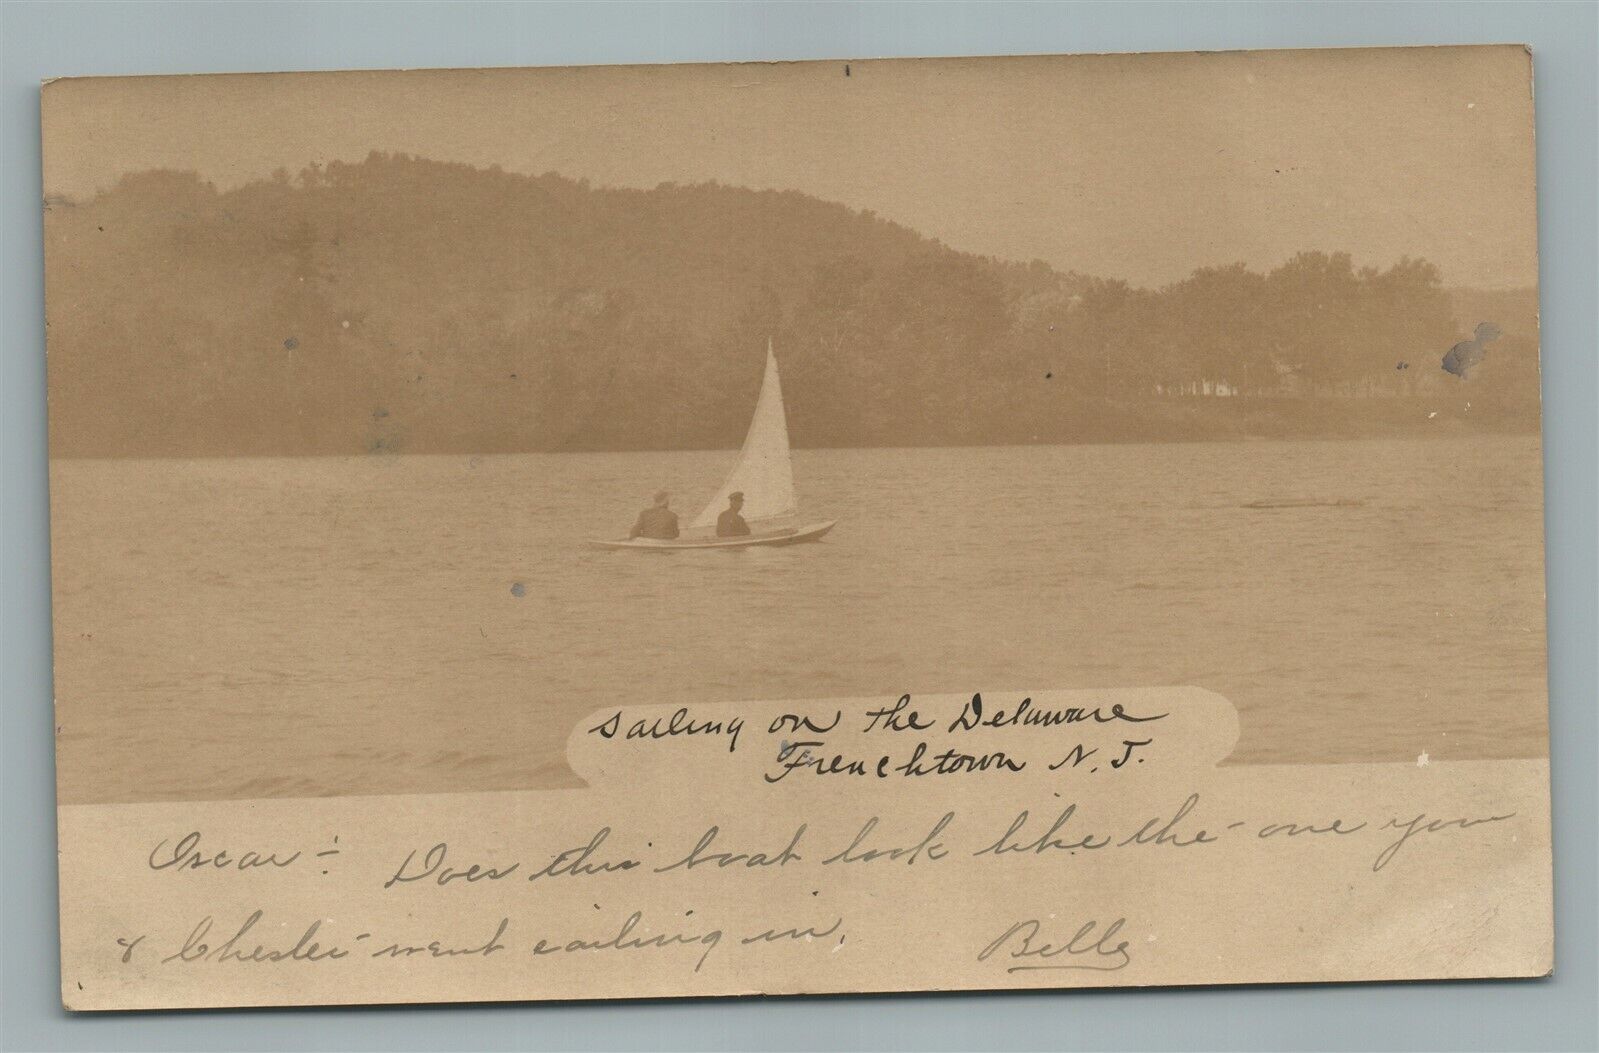 Sailing on the Delaware
Frenchtown N. J.
Oscar - Does this boat look like the one you
& Chester went sailing in.
Belle